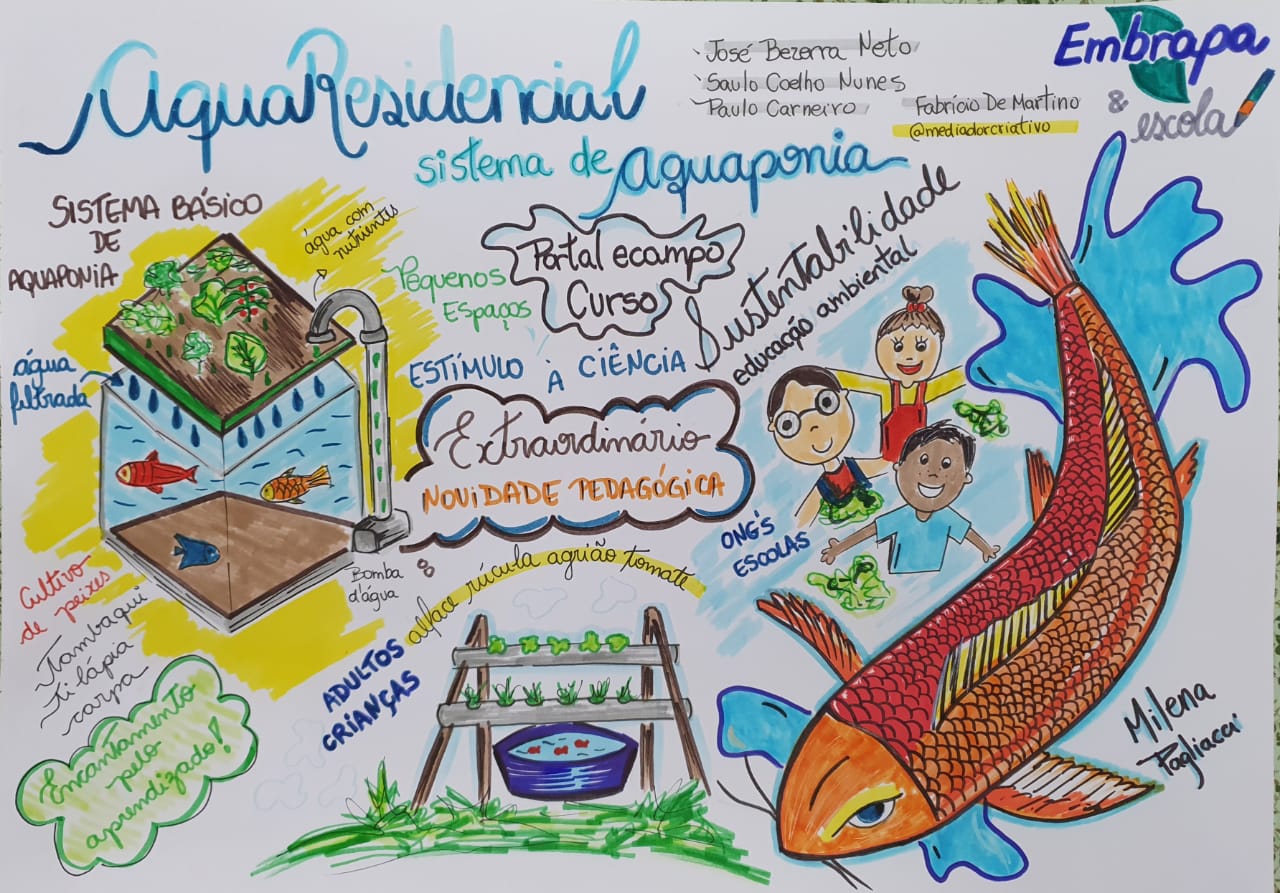 AquaResidencial
sistema de aquaponia
José Bezerra Neto
Saulo Coelho Nunes
Paulo Carneiro
Fabrício De Martino
@mediadorcriativo
Embrapa
& escola
SISTEMA BÁSICO
DE
AQUAPONIA
água com
nutrientes
água
filtrada
Cultivo
de peixes
Tambaqui
tilápia
carpa
Bomba
d'água
Encantamento
pelo
aprendizado!
Pequenos
Espaços
Portal ecampo
Curso
Sustentabilidade
educação ambiental
ESTÍMULO À CIÊNCIA
Extraordinário
NOVIDADE PEDAGÓGICA
&
alface rúcula agrião tomate
ADULTOS
CRIANÇAS
ONG'S
ESCOLAS
Milena
Pagliacci